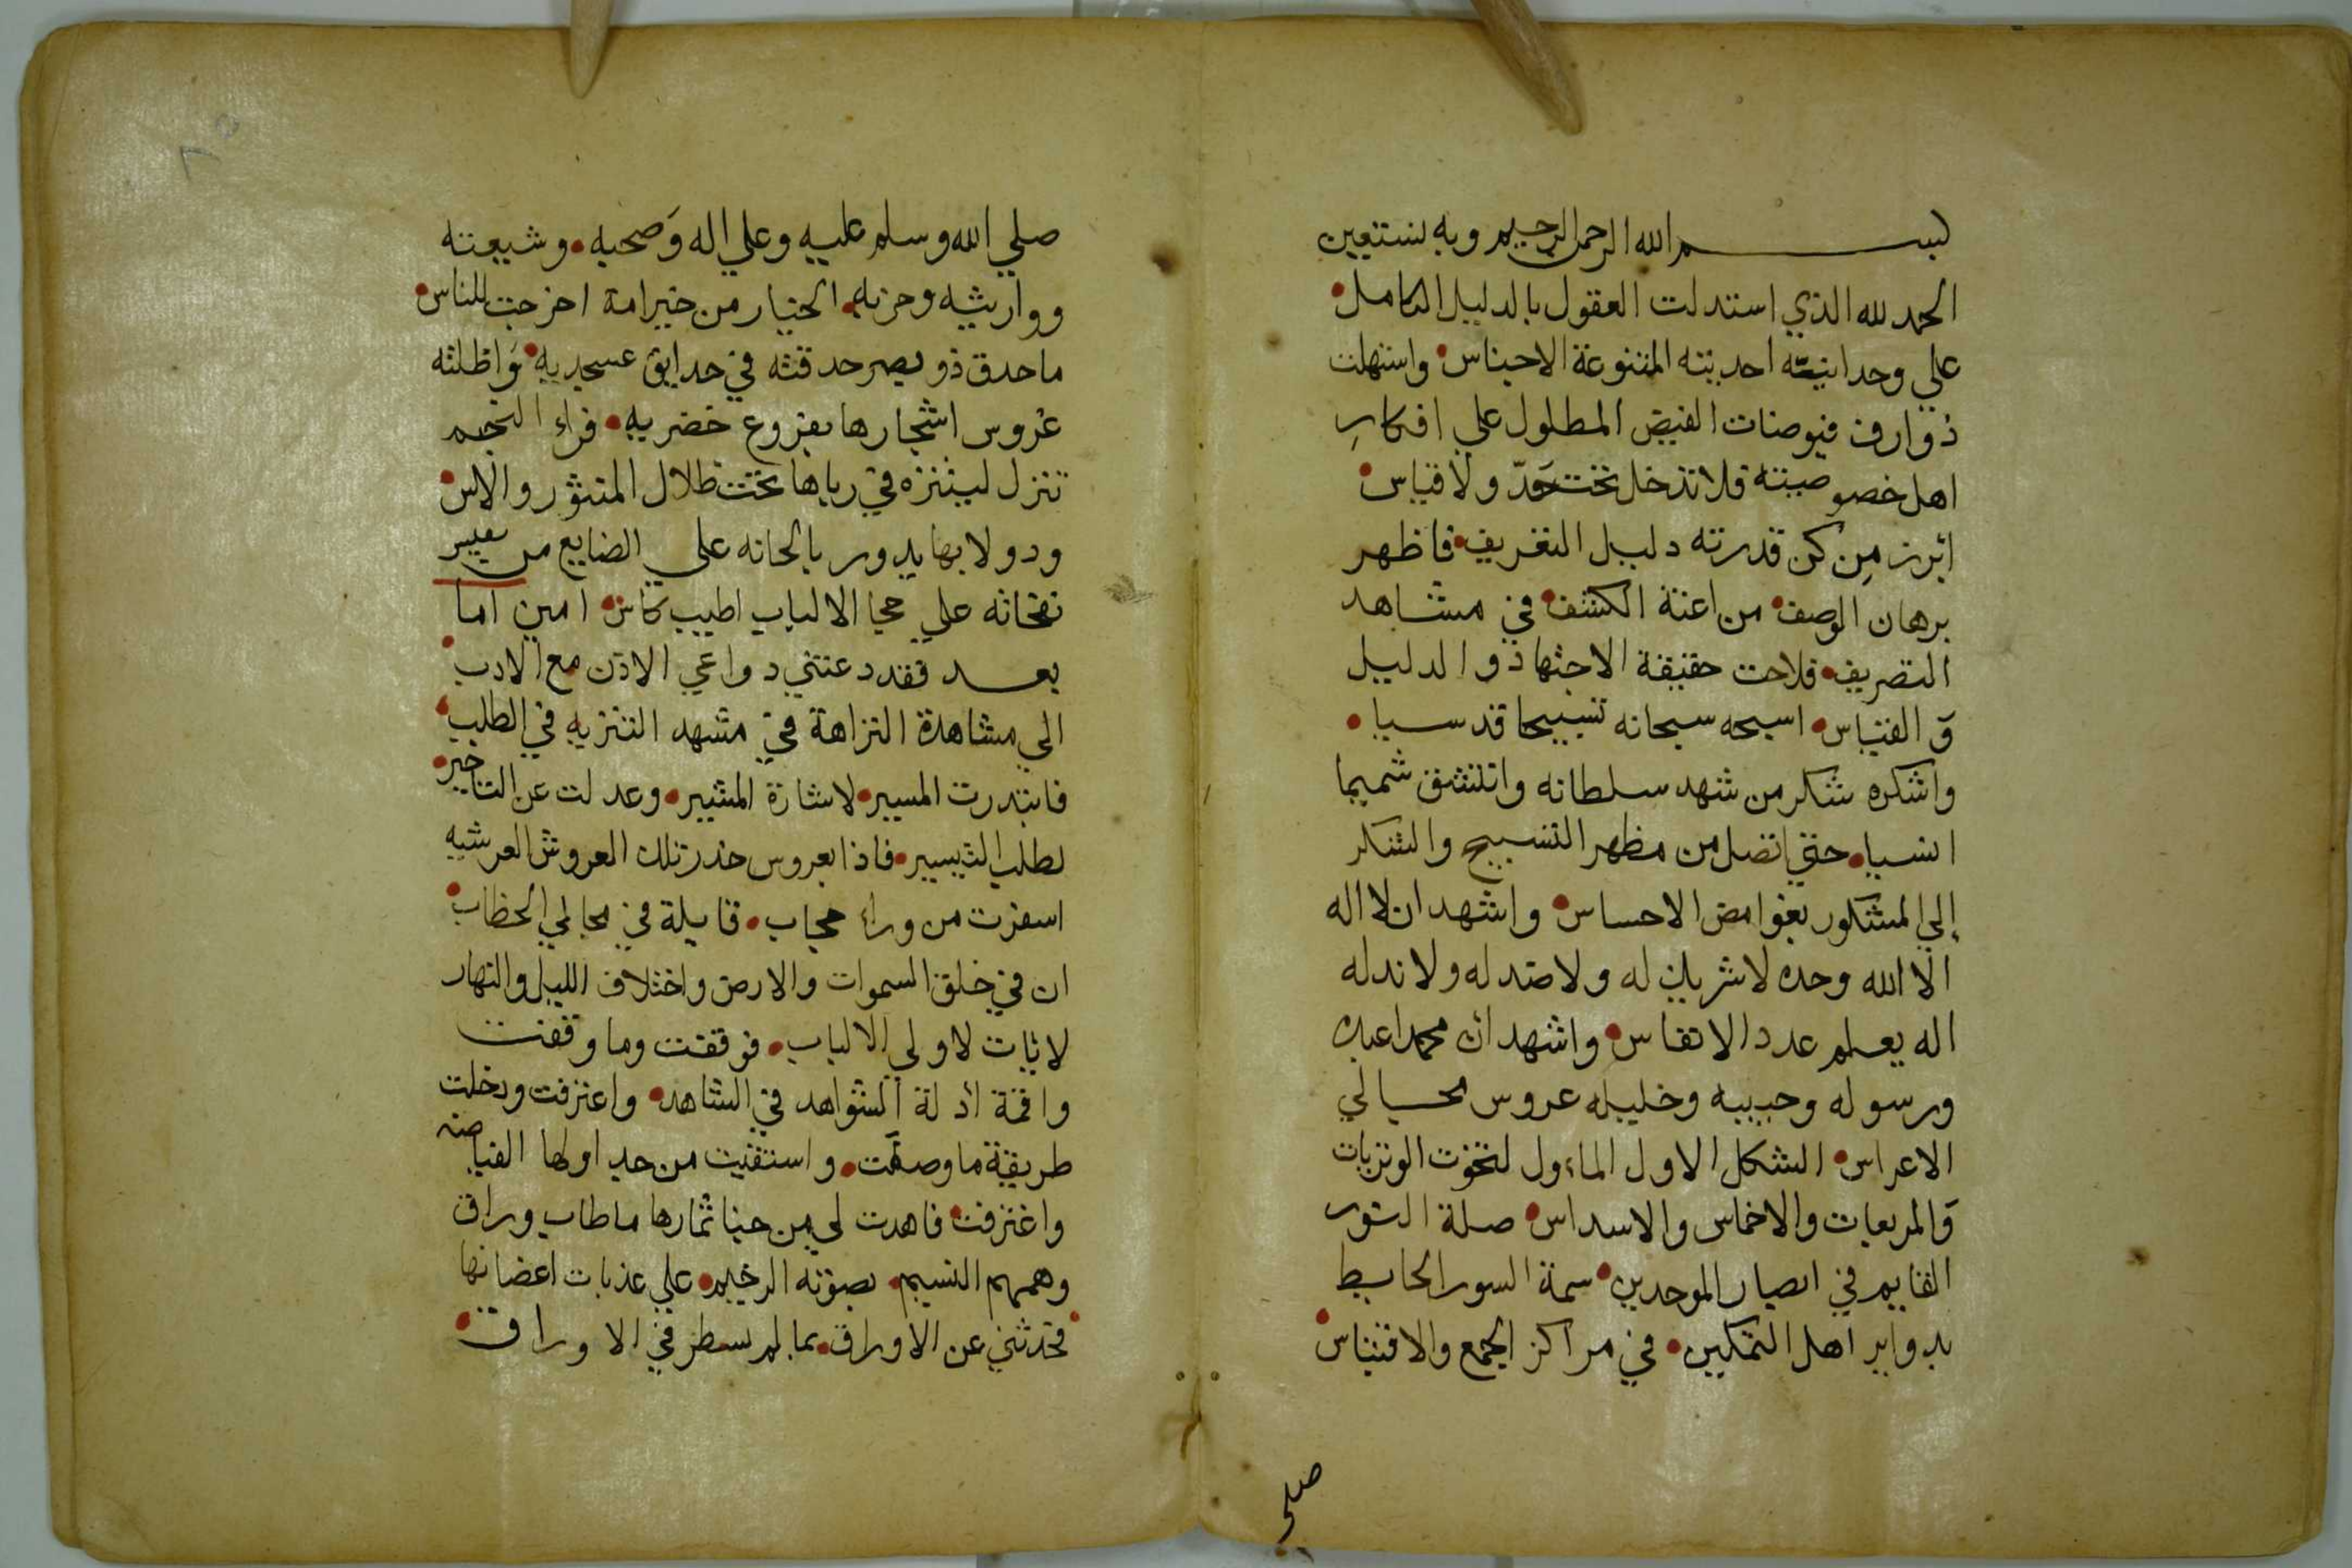 بسم الله الرحمن الرحيم وبه نستعين
الحمد لله الذي استدلت العقول بالدليل الكامل
علي وحدانيته احديته المتنوعة الاجناس واستهلت
ذوارف فيوضات الفيض المطلول علي افكار
اهل خصوصيته فلا تدخل تحت حد ولا قياس
ابرز من كن قدرته دليل التعريف فاظهر
برهان الوصف من اعنة الكشف في مشاهد
التصريف فلاحت حقيقة الاجتهاد والدليل
و القياس اسبحه سبحانه تسبيحا قدسيا
واشكره شكر من شهد سلطانه واتنشق شميما
انسيا حتي اتصل من مظهر التسبيح والشكر
إلي المشكور بغوامض الاحساس واشهد ان لا اله
الا الله وحده لا شريك له ولا ضد له ولا ند له
اله يعلم عدد الانفاس واشهد ان محمدا عبده
ورسوله وحبيبه وخليله عروس مجالي
الاعراس الشكل الاول الماءول لتخوت الوتريات
و المربعات والاخماس والاسداس صلة النور
القايم في ابصار الموحدين سمة السور الحايط
بدواير اهل التمكين في مراكز الجمع والاقتباس
صلي
صلي الله وسلم عليه وعلي اله وصحبه وشيعته
ووارثيه وحزبه الخيار من خير امة اخرجت للناس
ما حدق ذو بصر حدقته في حدايق عسجديه واظلته
غروس اشجارها بفروع خضريه فراء النجم
تنزل ليتنزه في رباها تحت ظلال المنثور والاس
ودولابها يدور بالحانه علي الضايع من
نفحاته علي حجا الالباب اطيب كاس امين اما
بعد فقد دعتني دواعي الاذن مع الادب
الي مشاهدة النزاهة في مشهد التنزيه في الطلب
فابتدرت المسير لاشارة المشير وعدلت عن التاخير
لطلب التيسير فاذا بعروس خدر تلك العروش العرشيه
اسفرت من وراء حجاب قايلة في مجالي الخطاب
ان في خلق السموات والارض واختلاف الليل والنهار
لايات لاولي الالباب فوقفت وما وقفت
واقمة ادلة الشواهد في الشاهد واعترفت ودخلت
طريقة ما وصفت واستقيت من جداولها الفياضه
واغترفت فاهدت لي من جنا ثمارها ما طاب وراق
وهمهم النسيم بصوته الرخيم علي عذبات اغصانها
فحدثني عن الاوراق بما لم يسطر في الاوراق